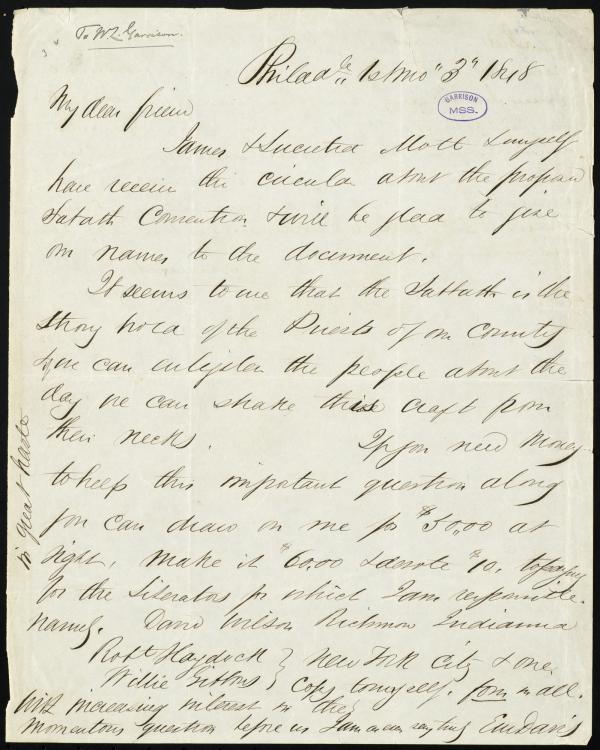 To W. L. Garrison.
Philad^a 1st Mo " 3" 1848
GARRISON
MSS.
My dear friend
James & Lucretia Mott & myself
have receivd this circular about the proposed
Sabath Convention & will be glad to give
our names to the document.
It seems to me that the Sabbath is the
strong hold of the Priests of our Country
if we can enlighten the people about the
day we can shake this craft from
their necks.
If you need Money
to help this important question along
you can draw on me for $50,00 at
sight, make it $60.00 & devote $10. to paying
for the Liberators for which I am responsible.
Namely. David Wilson Richmon Indianna
Robt Haydock } New York City & one
Willie Gibbons } Copy to myself. four in all.
With increasing interest in the
momentous question before us I am as ever
E M Davis
in great haste